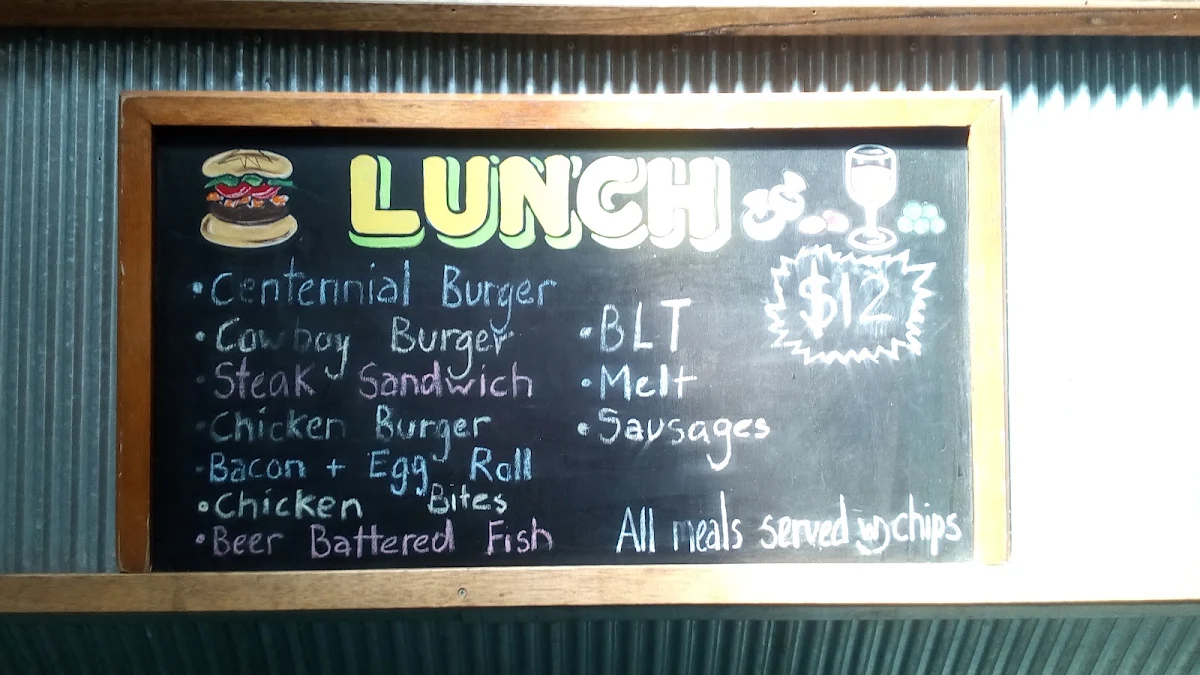 LUNCH
$12
• Centennial Burger
• Cowboy Burger
• Steak Sandwich
• Chicken Burger
• Bacon + Egg Roll
• Chicken Bites
• Beer Battered Fish
• BLT
• Melt
• Sausages
All meals served w chips